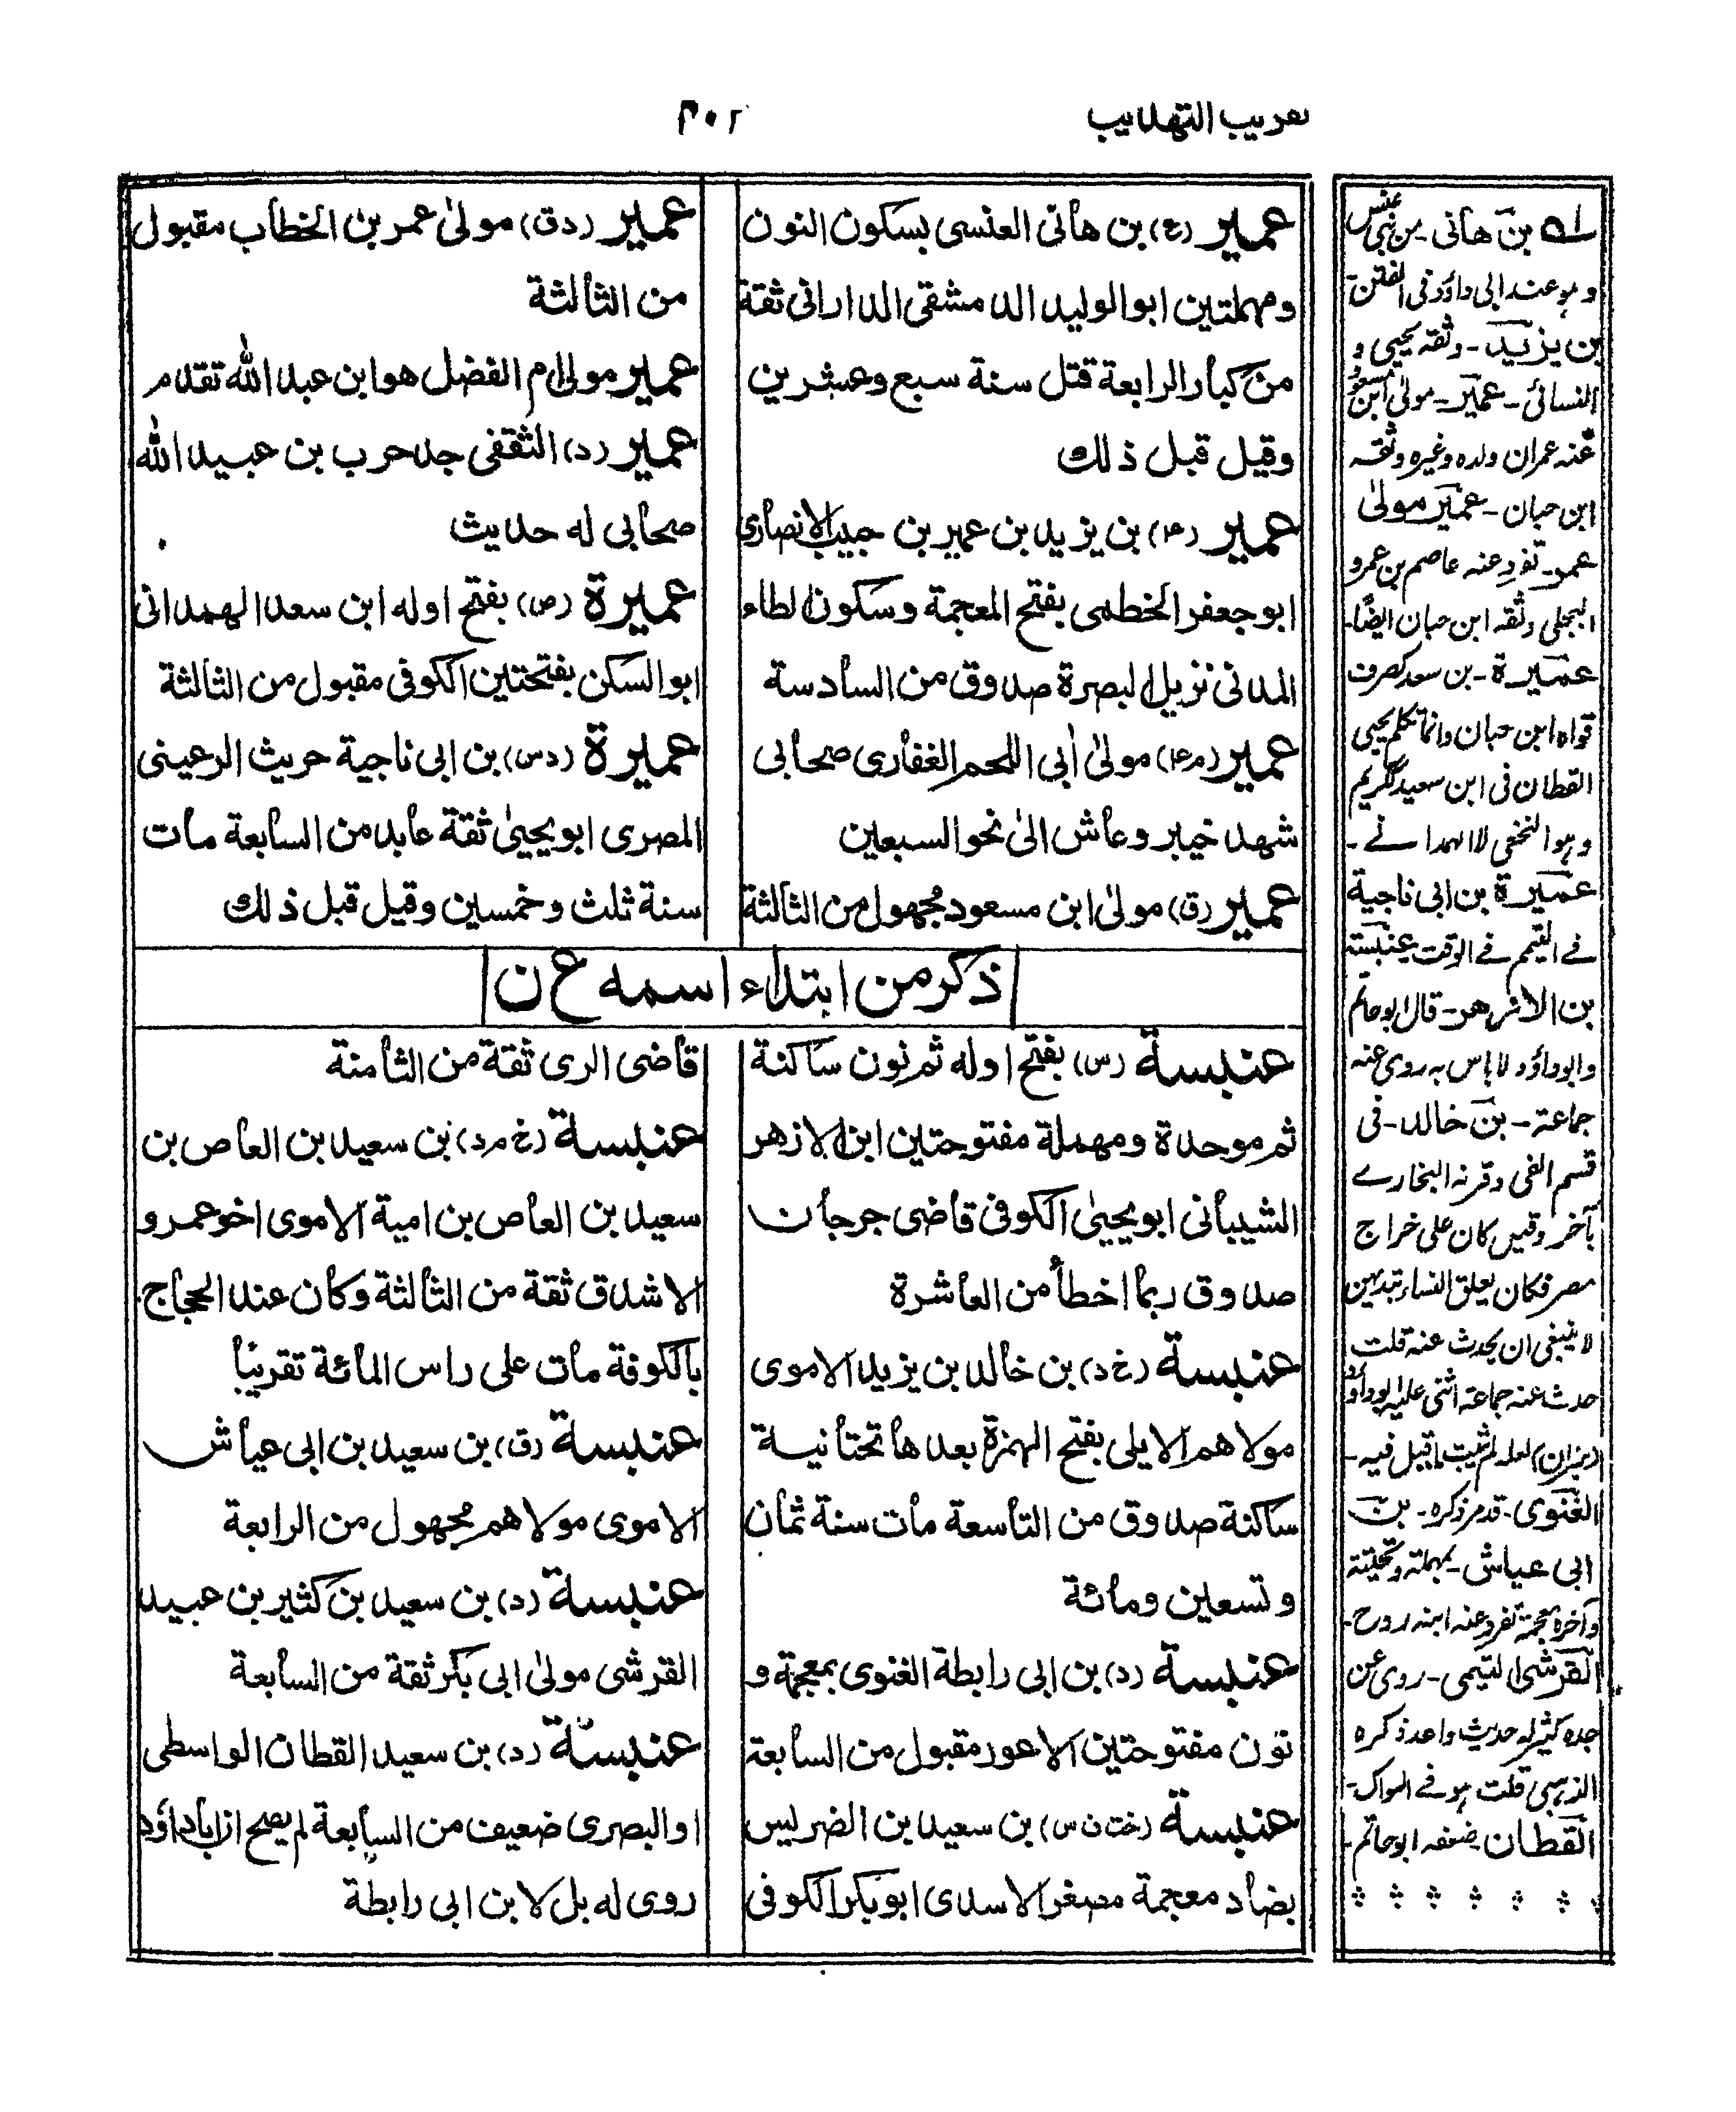 تقريب التهذيب
٣٠٢
عمير (ع) بن هانى العنسى بسكون النون
ومهملتين ابو الوليد الدمشقى الدارانى ثقة
من كبار الرابعة قتل سنة سبع وعشرين
وقيل قبل ذلك
عمير (عه) بن يزيد بن عمير بن حبيب الانصارى
ابو جعفر الخطمى بفتح المعجمة وسكون الطاء
المدنى نزيل البصرة صدوق من السادسة
عمير (م عه) مولىٰ أبى اللحم الغفارى صحابى
شهد خيبر وعاش الىٰ نحو السبعين
عمير (ق) مولىٰ ابن مسعود مجهول من الثالثة
عمير (د ق) مولىٰ عمر بن الخطاب مقبول
من الثالثة
عمير مولىٰ ام الفضل هو ابن عبد الله تقدم
عمير (د) الثقفى جد حرب بن عبيد الله
صحابى له حديث
عميرة (ص) بفتح اوله ابن سعد الهمدانى
ابو السكن بفتحتين الكوفى مقبول من الثالثة
عميرة (د س) بن ابى ناجية حريث الرعينى
المصرى ابو يحيىٰ ثقة عابد من السابعة مات
سنة ثلث وخمسين وقيل قبل ذلك
ذكر من ابتداء اسمه ع ن
عنبسة (س) بفتح اوله ثم نون ساكنة
ثم موحدة ومهملة مفتوحتين ابن الازهر
الشيبانى ابو يحيىٰ الكوفى قاضى جرجان
صدوق ربما اخطأ من العاشرة
عنبسة (خ د) بن خالد بن يزيد الاموى
مولاهم الايلى بفتح الهمزة بعدها تحتانية
ساكنة صدوق من التاسعة مات سنة ثمان
وتسعين ومائة
عنبسة (د) بن ابى رابطة الغنوى بمعجمة و
نون مفتوحتين الاعور مقبول من السابعة
عنبسة (خت ت س) بن سعيد بن الضريس
بضاد معجمة مصغر الاسدى ابو بكر الكوفى
قاضى الرى ثقة من الثامنة
عنبسة (خ م د) بن سعيد بن العاص بن
سعيد بن العاص بن امية الاموى اخو عمرو
الاشدق ثقة من الثالثة وكان عند الحجاج
بالكوفة مات على راس المائة تقريبًا
عنبسة (ق) بن سعيد بن ابى عياش
الاموى مولاهم مجهول من الرابعة
عنبسة (د) بن سعيد بن كثير بن عبيد
القرشى مولىٰ ابى بكر ثقة من السابعة
عنبسة (د) بن سعيد القطان الواسطى
او البصرى ضعيف من السابعة لم يصح ان اباداؤد
روى له بل لابن ابى رابطة
له بن هانى - من بنى عنس
وہو عند ابى داؤد فى الفتن
بن يزيد - وثقه يحيى و
النسائى - عمير - مولىٰ ابن مسعود
عنه عمران ولده وغيره وثقه
ابن حبان - عمير مولىٰ
عمر - تفرد عنه عاصم بن عمرو
البجلى وثقه ابن حبان ايضًا -
عميرة - بن سعد
قواه ابن حبان وانما تكلم يحيى
القطان فى ابن سعيد
وہو النخعى لا الهمدانے -
عميرة بن ابى ناجية
فے التيمم فے الوقت عنبسة
بن الازهر - قال ابو حاتم
وابوداؤد لا باس به روى عنه
جماعة - بن خالد - فى
قسم الفى وقرنه البخارے
بآخر وقيل كان على خراج
مصر فكان يعلق النساء بثديهن
لا ينبغى ان يحدث عنه قلت
حدث عنه جماعة اثنى عليه ابوداؤد
(ميزان) لعله لم يثبت ما قيل فيه -
الغنوى - قد مر ذكره - بن
ابى عياش - بمهملة وتحتية
وآخره معجمة تفرد عنه ابنه روح -
القرشى التيمى - روى عن
جده كثير له حديث واحد ذكره
الذہبى قلت ہو فے السواك -
القطان - ضعفه ابو حاتم -